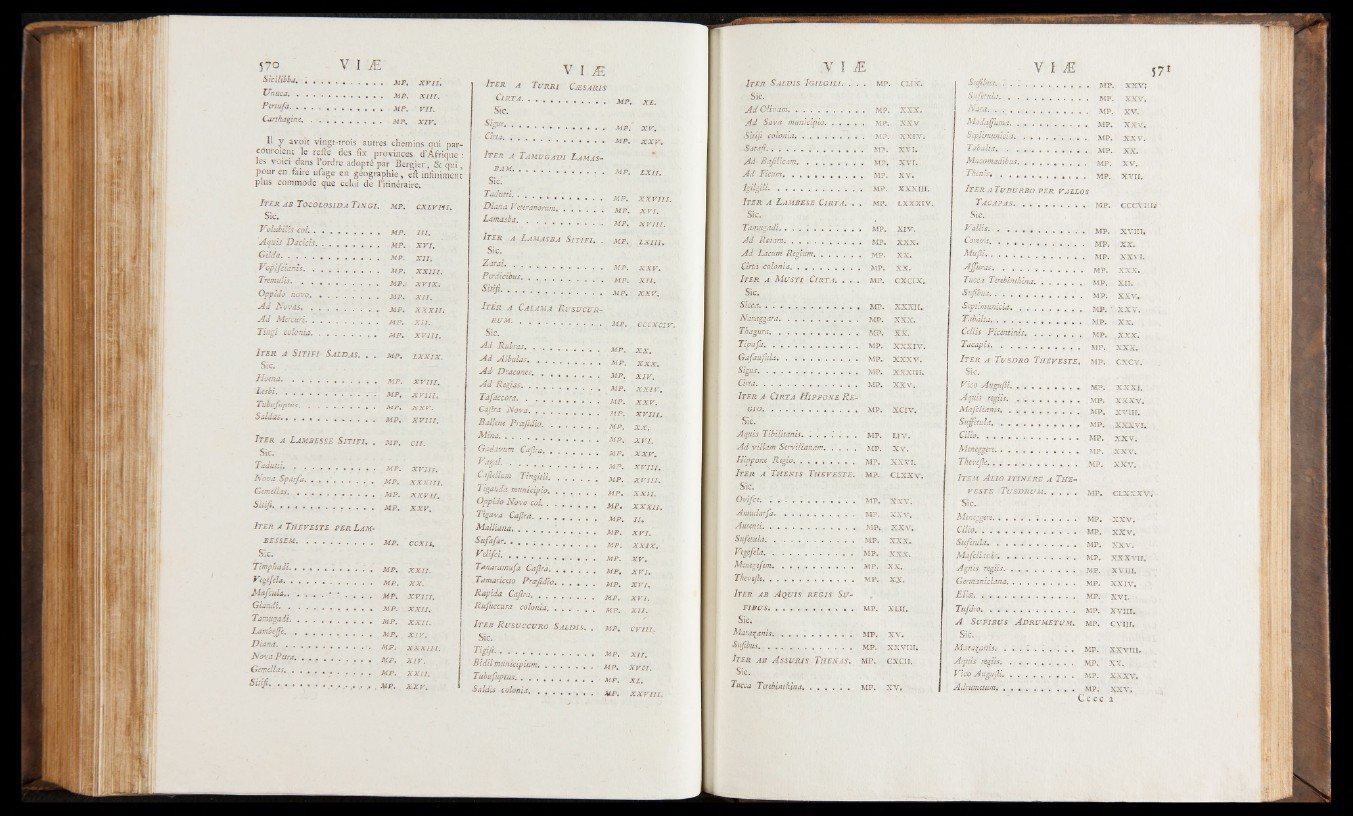 570 VIÆ
Sicilibba. MP. XVII.
Unuca. MP. XIII.
Pertusa. MP. VII.
Carthagine. MP. XIV.
Il y avoit vingt-trois autres chemins qui par-
couroient le reste des six provinces d'Afrique :
les voici dans l'ordre adopté par Bergier, & qui,
pour en faire usage en géographie, est infiniment
plus commode que celui de l'itinéraire.
ITER AB TOCOLOSIDA TINGI. MP. CXLVIII.
Sic.
Volubilis col. MP. III.
Aquis Dacicis. MP. XVI.
Gilda. MP. XII.
Vopisciania. MP. XXIII.
Tremulis. MP. XVIX.
Oppido novo. MP. XII.
Ad Novas. MP. XXXII.
Ad Mercuri. MP. XII.
Tingi colonia. MP. XVIII.
ITER A SITIFI SALDAS. MP. LXXIX.
Sic.
Horrea. MP. XVIII.
Lesbi. MP. XVIII.
Tubusuptus. MP. XXV.
Saldas. MP. XVIII.
ITER A LAMBESSE SITIFI. MP. CII.
Sic.
Tadutii. MP. XVIII.
Nova Sparsa. MP. XXXIII.
Gemellas. MP. XXVII.
Sitifi. MP. XXV.
ITER A THEVESTE PER LAM-
BESSEM. MP. CCXII.
Sic.
Timphadi. MP. XXII.
Vegesela. MP. XX.
Mascula. MP. XVIII.
Glandi. MP. XXII.
Tamugadi. MP. XXII.
Lambesse. MP. XIV.
Diana. MP. XXXIII.
Nova Petra. MP. XIV.
Gemellas. MP. XXII.
Sitifi. MP. XXV.
VIÆ
ITER A TURRI CÆSARIS
CIRTA. MP. XL.
Sic.
Sigus. MP. XV.
Cirta. MP. XXV.
ITER A TAMUGADI LAMAS-
BAM. MP. LXII.
Sic.
Tadutti. MP. XXVIII.
Diana Veteranorum. MP. XVI.
Lamasba. MP. XVIII.
ITER A LAMASBA SITIFI. MP. LXIII.
Sic.
Zarai. MP. XXV.
Perdicibus. MP. XII.
Sitifi. MP. XXV.
ITER A CALAMA RUSUCUR-
RUM. MP. CCCXCIV.
Sic.
Ad Rubras. MP. XX.
Ad Albulas. MP. XXX.
Ad Dracones. MP. XIV.
Ad Regias. MP. XXIV.
Tasaccora. MP. XXV.
Castra Nova. MP. XVIII.
Ballene Præsidio. MP. XX.
Mina. MP. XVI.
Gadaum Castra. MP. XXV.
Vagal. MP. XVIII.
Castellum Tingitii. MP. XVIII.
Tigauda municipio. MP. XXII.
Oppido Novo col. MP. XXXII.
Tigava Castra. MP. II.
Malliana. MP. XVI.
Sufasar. MP. XXIX.
Velisci. MP. XV.
Tanaramusa Castra. MP. XVI.
Tamariceto Præsidio. MP. XVI.
Rapida Castra. MP. XVI.
Rusuccuru colonia. MP. XII.
ITER RUSUCCURO SALDIS. MP. CVIII.
Sic.
Tigisi. MP. XII.
Bidil municipium. MP. XVII.
Tubusuptus. MP. XL.
Saldis colonia. MP. XXVIII.
VIÆ
ITER SALDIS IGILGILI. MP. CLIX.
Sic.
Ad Olivam. MP. XXX.
Ad Sava municipio. MP. XXV
Sitifi colonia. MP. XXIV.
Satafi. MP. XVI.
Ad Basilicam. MP. XVI.
Ad Ficum. MP. XV.
Igilgili. MP. XXXIII.
ITER A LAMBESE CIRTA. MP. LXXXIV.
Sic.
Tamugadi. MP. XIV.
Ad Rotam. MP. XXX.
Ad Lacum Regium. MP. XX.
Cirta colonia. MP. XX.
ITER A MUSTI CIRTA. MP. CXCIX.
Sic.
Sicca. MP. XXXII.
Naraggara. MP. XXX.
Thagura. MP. XX.
Tipasa. MP. XXXIV.
Gasaufula. MP. XXXV.
Sigus. MP. XXXIII.
Cirta. MP. XXV.
ITER A CIRTA HIPPONE RE-
GIO. MP. XCIV.
Sic.
Aquis Tibilitanis. MP. LIV.
Ad villam Servilianam. MP. XV.
Hippone Regio. MP. XXVI.
ITER A THENIS THEVESTE. MP. CLXXV.
Sic.
Ovisce. MP. XXV.
Amudarsa. MP. XXV.
Autenti. MP. XXV.
Sufetula. MP. XXX.
Vegesela. MP. XXX.
Menegesem. MP. XX.
Theveste. MP. XX.
ITER AB AQUIS REGIS SU-
FIBUS. MP. XLII.
Sic.
Marazanis. MP. XV.
Sufibus. MP. XXVIII.
ITER AB ASSURIS THENAS. MP. CXCII.
Sic.
Tucca Terebinthina. MP. XV.
VIÆ 571
Sufibus. MP. XXVI
Sufetula. MP. XXV.
Nara. MP. XV.
Madassuma. MP. XXV.
Septiminicia. MP. XXV.
Tabalta. MP. XX.
Macomadibus. MP. XV.
Thenis. MP. XVII.
ITER A TUBURBO PER VALLOS
TACAPAS. MP. CCCVIII.
Sic.
Vallis. MP. XVIII.
Coreva. MP. XX.
Musti. MP. XXVI.
Assuras. MP. XXX.
Tucca Terebinthina. MP. XII.
Sufibus. MP. XXV.
Septimunicia. MP. XXV.
Tabalta. MP. XX.
Cellis Picentinis. MP. XXX.
Tacapis. MP. XXX.
ITER A TUSDRO THEVESTE. MP. CXCV.
Sic.
Vico Augusti. MP. XXXI.
Aquis regiis. MP. XXXV.
Masclianis. MP. XVIII.
Suffetula. MP. XXXVI.
Cilio. MP. XXV.
Meneggere. MP. XXV.
Theveste. MP. XXV.
ITEM ALIO ITINERE A THE-
VESTE TUSDRUM. MP. CLXXXV.
Sic.
Meneggere. MP. XXV.
Cilio. MP. XXV.
Sufetula. MP. XXV.
Masclianis. MP. XXXVII.
Aquis regiis. MP. XVIII.
Germaniciana. MP. XXIV.
Eliæ. MP. XVI.
Tusdro. MP. XVIII.
A SUFIBUS ADRUMETUM. MP. CVIII.
Sic.
Marazanis. MP. XXVIII.
Aquis regiis. MP. XX.
Vico Augusti. MP. XXXV.
Adrumetum. MP. XXV.
Cccc 2